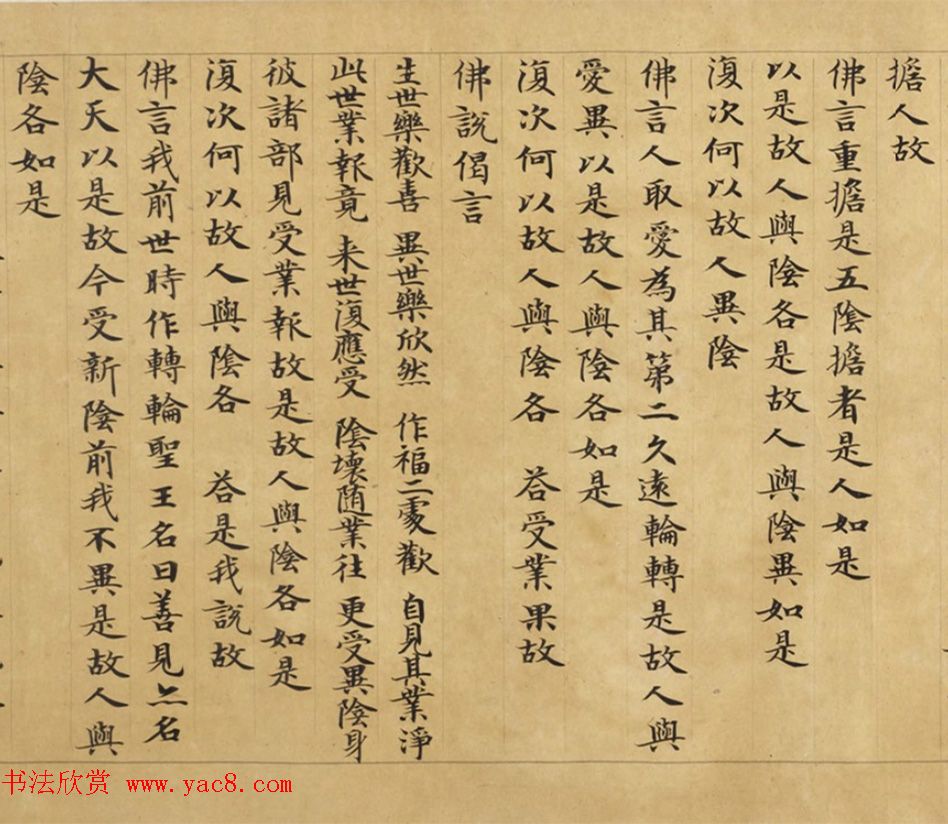 擔人故
佛言重擔是五陰擔者是人如是
以是故人與陰各是故人與陰異如是
復次何以故人異陰
佛言人取愛為其第二久遠輪轉是故人與
愛異以是故人與陰各如是
復次何以故人與陰各 荅受業果故
佛說偈言
生世樂歡喜 異世樂欣然 作福二處歡 自見其業淨
此世業報竟 来世復應受 陰壞随業往 更受異陰身
彼諸部見受業報故是故人與陰各如是
復次何以故人與陰各 荅是我說故
佛言我前世時作轉輪聖王名曰善見亦名
大天以是故今受新陰前我不異是故人與
陰各如是
书法欣赏 www.yac8.com